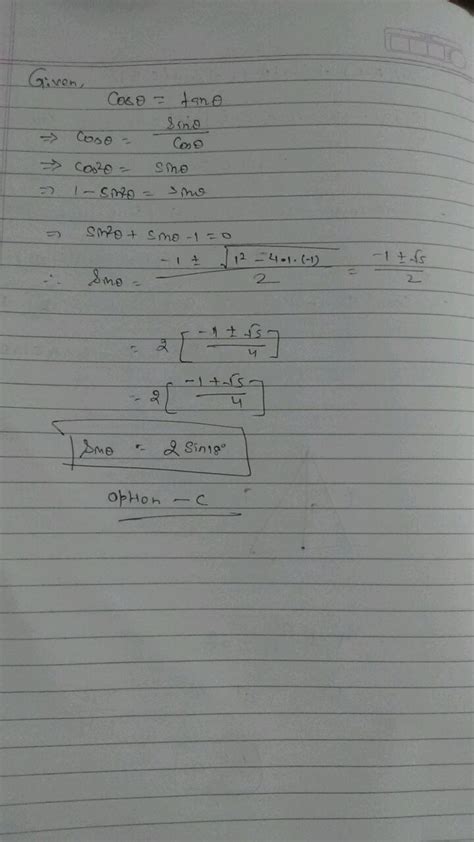 Given,
Cosθ = tanθ
⇒ Cosθ = Sinθ/Cosθ
⇒ Cos²θ = Sinθ
⇒ 1 - Sin²θ = Sinθ
⇒ Sin²θ + Sinθ - 1 = 0
∴ Sinθ = (-1 ± √(1² - 4·1·(-1)))/2 = (-1 ± √5)/2
= 2 [(-1 ± √5)/4]
= 2 [(-1 + √5)/4]
Sinθ = 2 Sin18°
Option - C